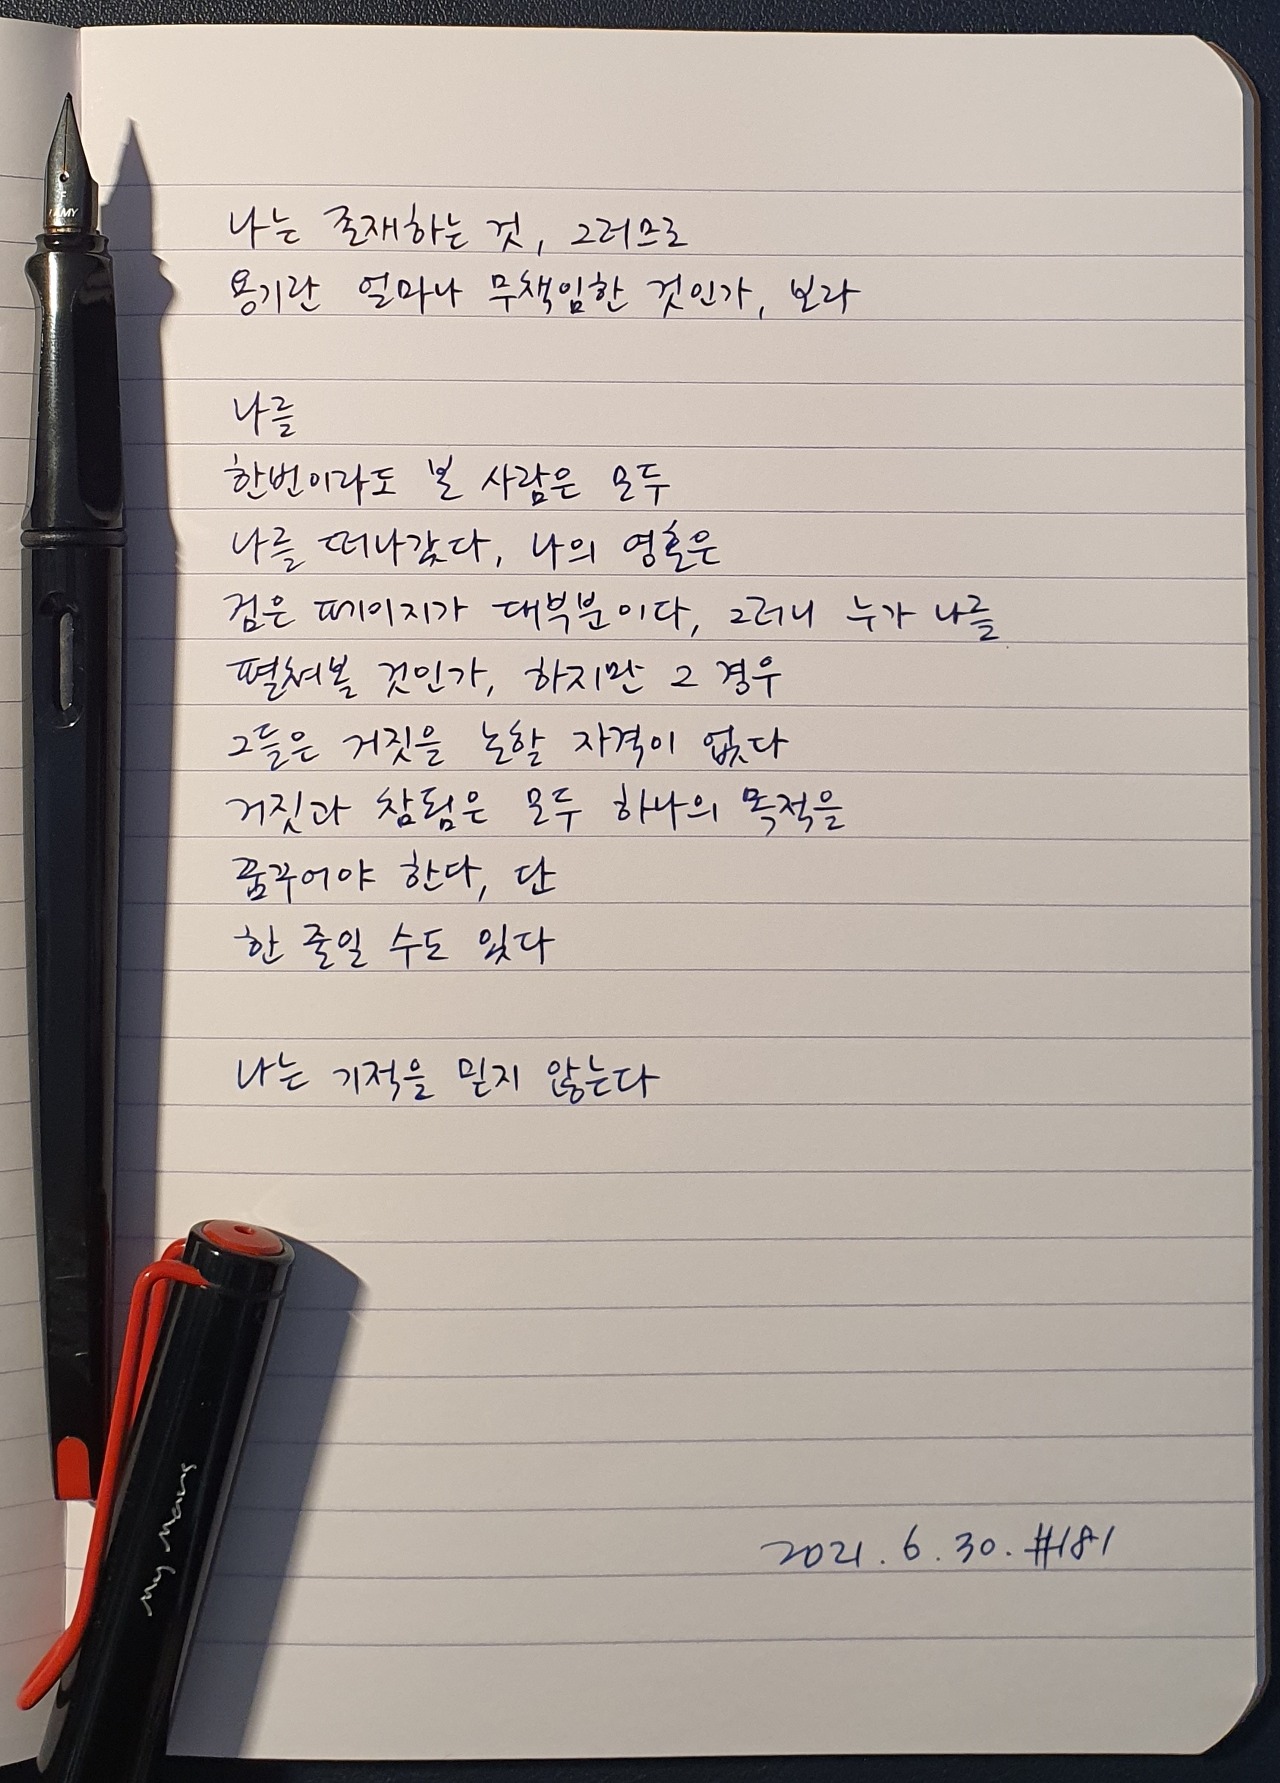 나는 존재하는 것, 그러므로
용기란 얼마나 무책임한 것인가, 보라
나를
한번이라도 본 사람은 모두
나를 떠나갔다, 나의 영혼은
검은 페이지가 대부분이다, 그러니 누가 나를
펼쳐볼 것인가, 하지만 그 경우
그들은 거짓을 논할 자격이 없다
거짓과 참됨은 모두 하나의 목적을
꿈꾸어야 한다, 단
한 줄일 수도 있다
나는 기적을 믿지 않는다
2021. 6. 30. #181
F
LAMY